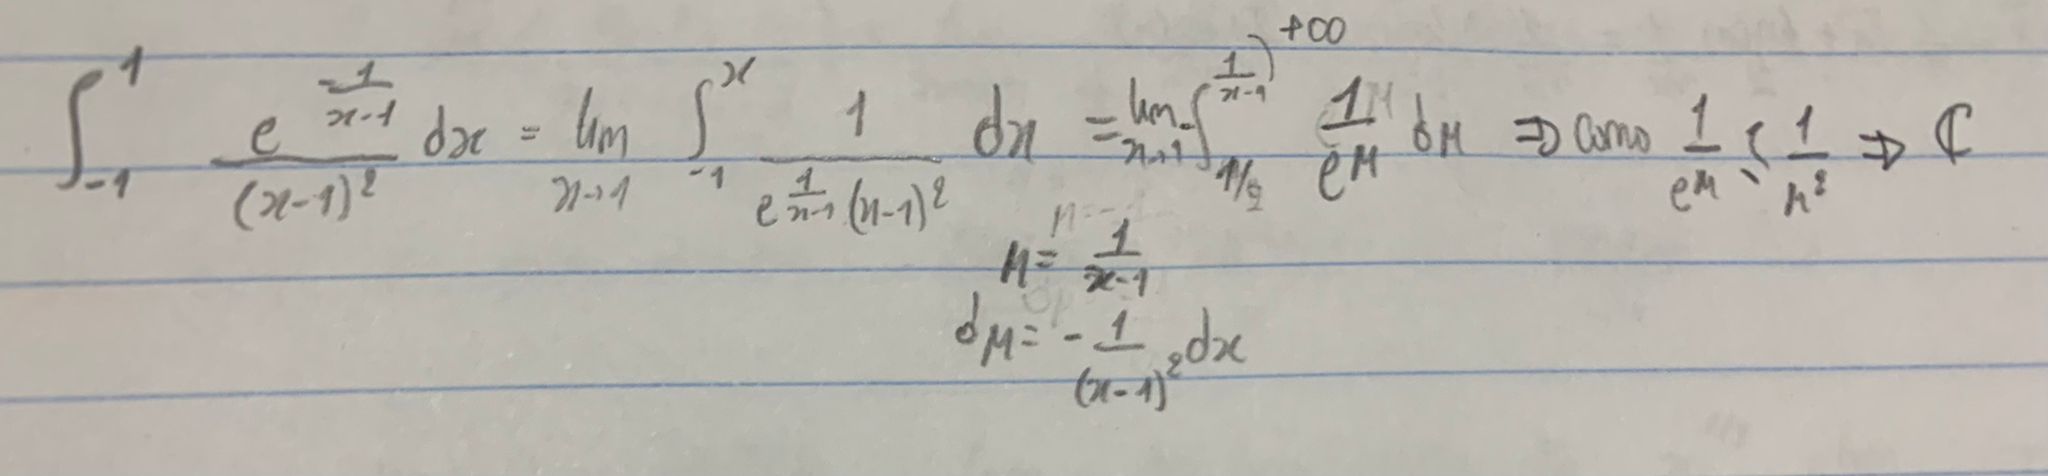 ∫_{-1}^{1} e^{-\frac{1}{x-1}}/(x-1)² dx = lim_{x→1} ∫_{-1}^{x} 1/(e^{\frac{1}{x-1}}(x-1)²) dx = lim_{x→1^-} ∫_{1/2}^{\frac{1}{x-1}) +∞} 1/e^μ dμ ⇒ como 1/e^μ ≤ 1/μ² ⇒ ℂ
μ = 1/(x-1)
dμ = -1/(x-1)² dx